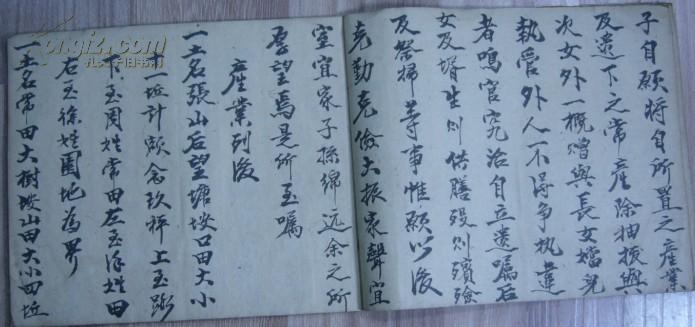 子自願将自所置之産業
及遺下之常産除抽撥與
次女外一概贈與長女嬌兒
執管外人不得争执違
者鳴官究治自立遺嘱后
女及壻生則供膳殁則殯殮
及祭掃等事惟願以後
克勤克儉大振家聲宜
室宜家子孫綿远余之所
厚望焉是所至嘱
産業列後
一土名張山后望塘坟口田大小
二坵計額念玖秤上至
下至周姓常田左至洋姓田
右至徐姓園地為界
一土名常田大樹坟山田大小四坵